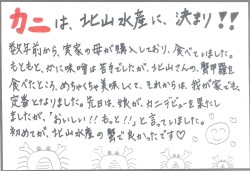 カニは、北山水産に、決まり!!
数年前から、実家の母が購入しており、食べていました。
もともと、かに味噌は苦手でしたが、北山さんの、蟹甲羅を
食べたところ、めちゃくちゃ美味しくて、それからは、我が家でも、
定番となりました。先日は、娘が、カニデビューを果たし
ましたが、「おいしい!!もっと!!」と言っていました。
初めてが、北山水産の蟹で良かったです♡